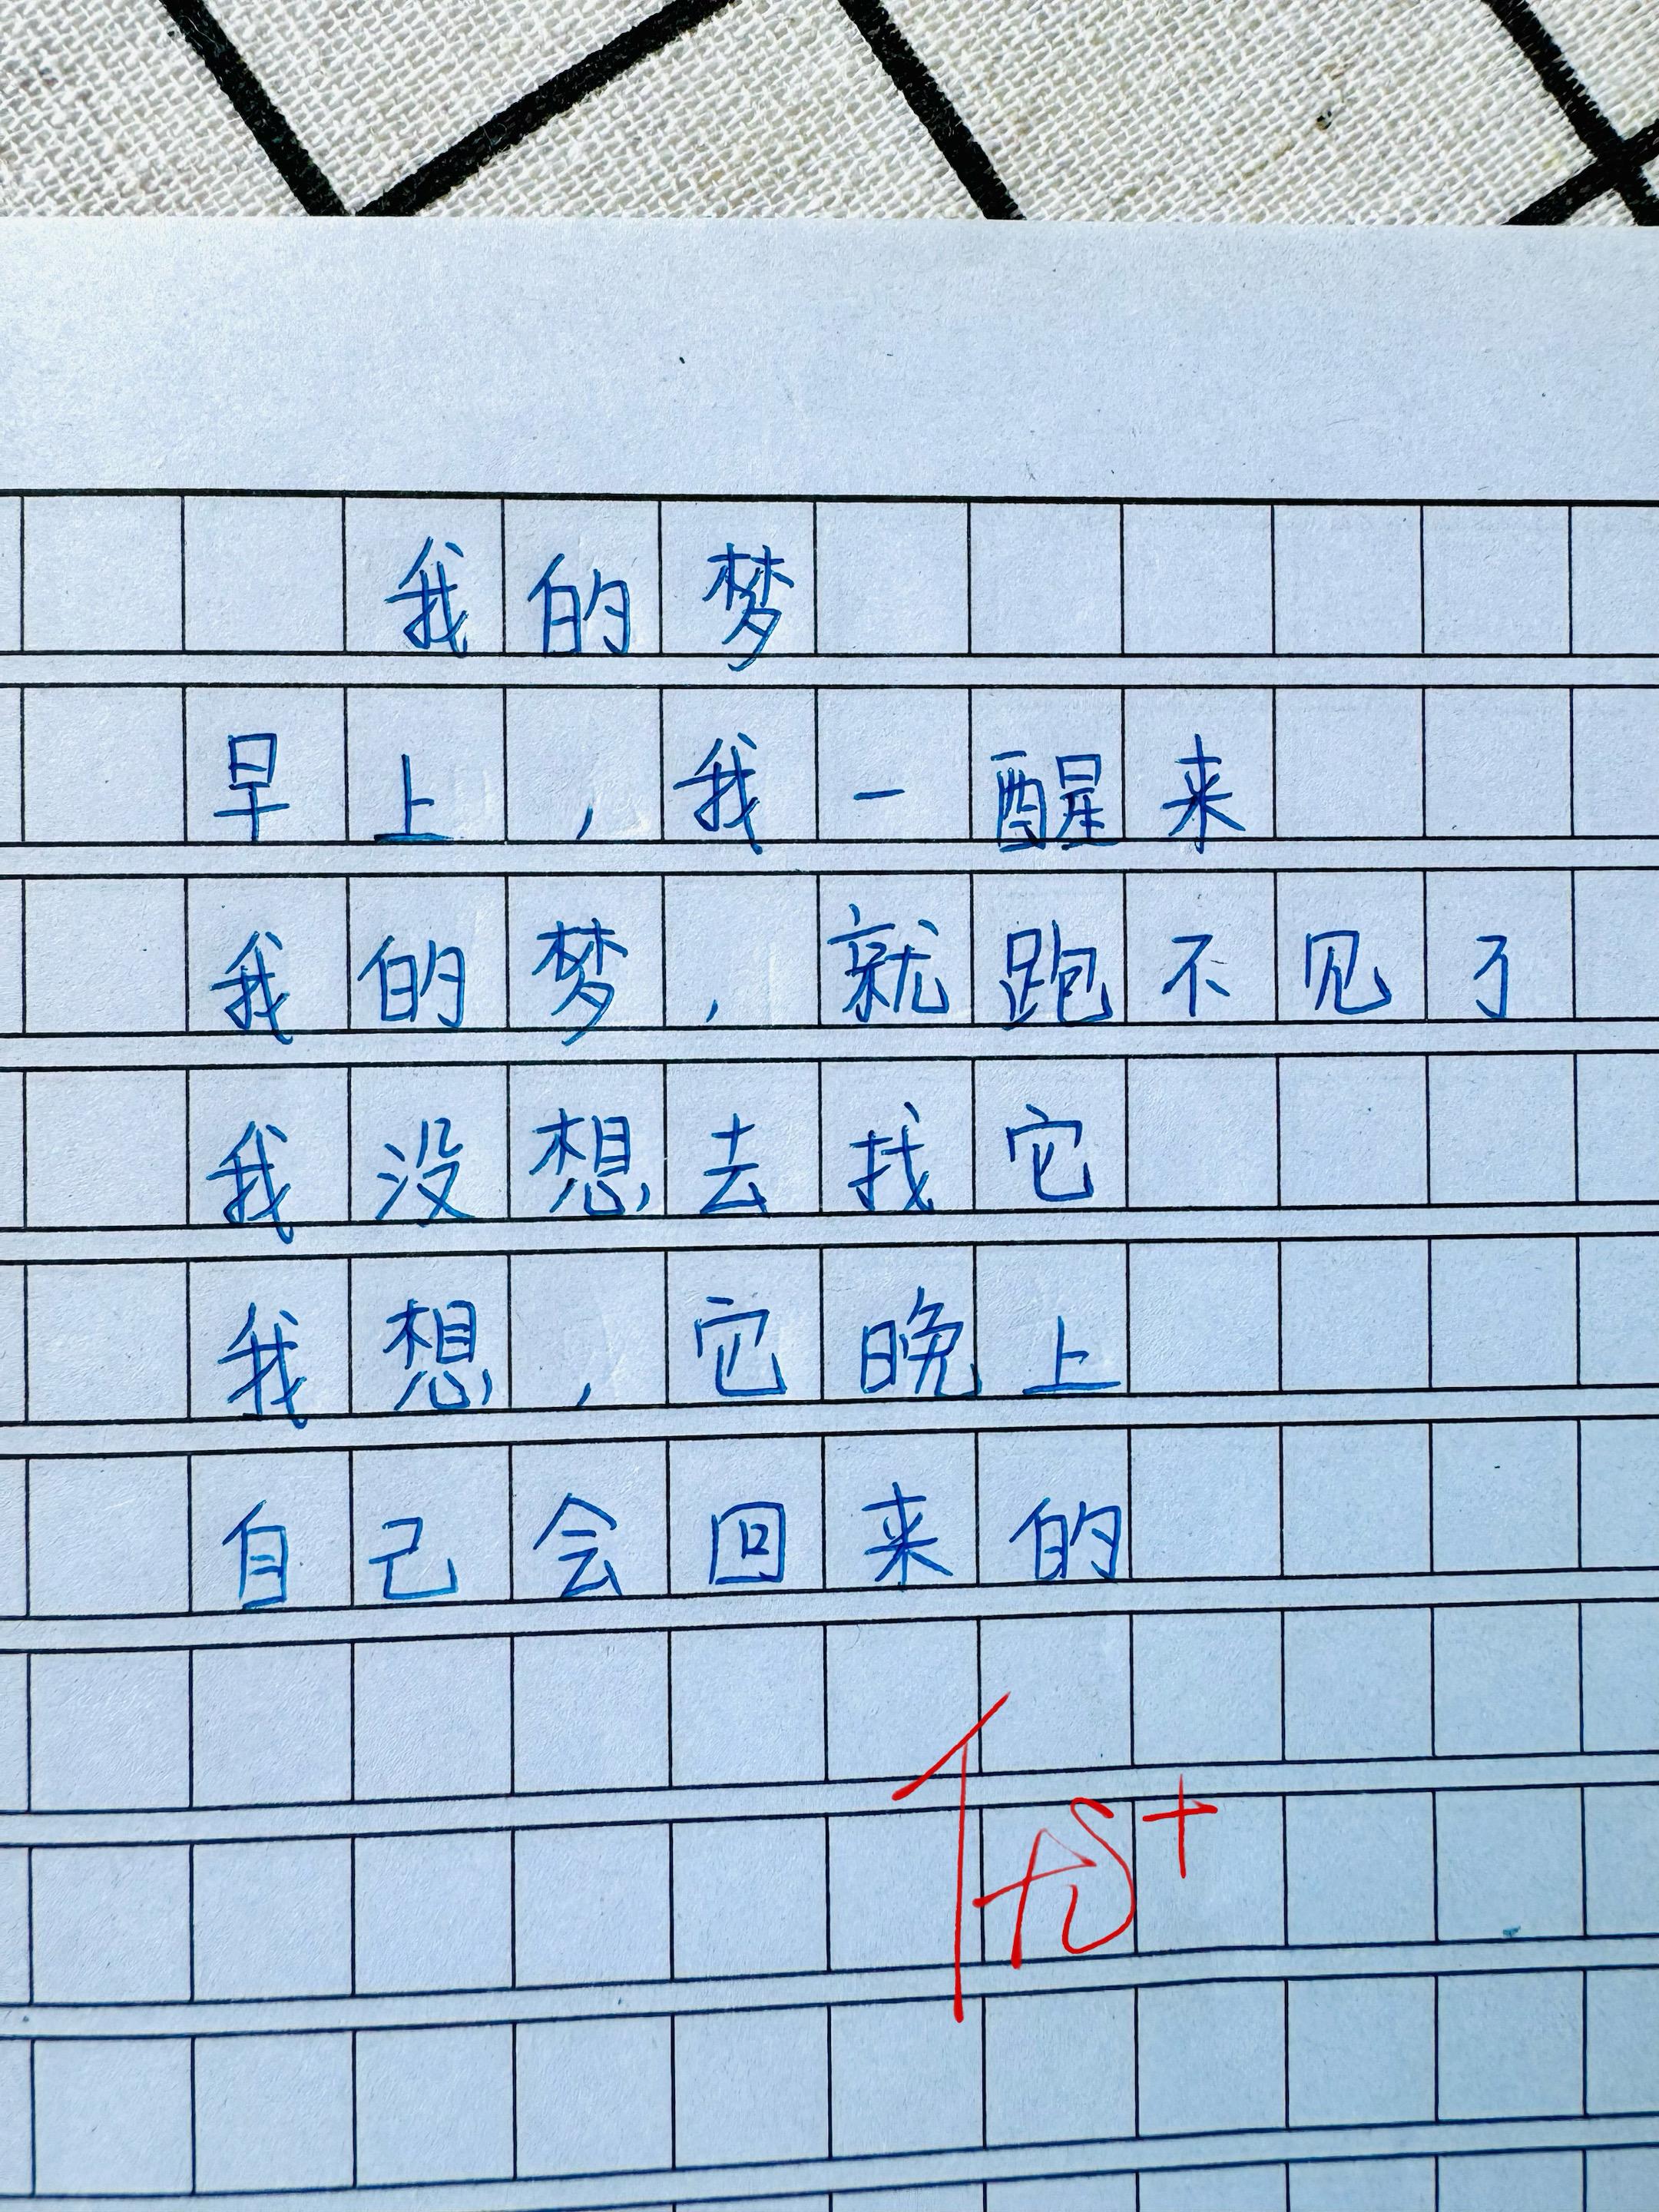 我的梦
早上，我一醒来
我的梦，就跑不见了
我没想去找它
我想，它晚上
自己会回来的
优+